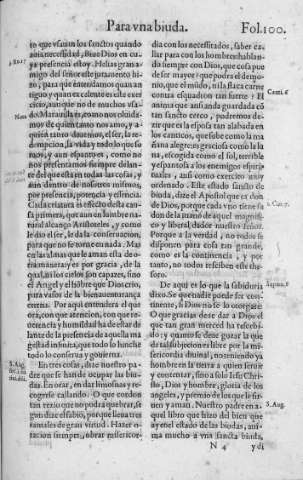 Para vna biuda. Fol.100.
to que vsauan los sanctos quando
auia necessidad, viue Dios en cu-
ya presencia estoy. Helias gran a-
migo del señor este juramento hi-
zo, para que entendamos quan an
tiguo y quan excelente es este exer
cicio, aunque no de muchos vsa-
do. Marauilla es, como nos oluida-
mos de quien tanto nos amo, y a
quien tanto deuemos, el ser, la re-
dempcion, la vida y todo lo que so
mos, y aun espanto es, como no
nos presentamos siempre delan-
te del que esta en todas las cosas, y
aun dentro de nosotros mismos,
por presencia, potencia y essencia.
Cada criatura es effecto desta cau-
sa primera, que aun con lumbre na-
tural alcanço Aristoteles, y como
le dio el ser, le da la conseruacion,
para que no se torne en nada. Mas
en las almas que le aman esta de o-
tra manera: y es por gracia, de la
qual, ni los cielos son capazes, sino
el Angel y el hõbre que Dios crio,
para vasos de la bienauenturança
eterna. Por aqui entendera el que
ora, con que atencion, con que re-
uerencia y humildad ha de estar de
lante de la presencia de aquella ma
gestad infinita, que todo lo hinche
todo lo conserua y gouierna.
En tres cosas, dize nuestro pa-
dre que se hande ocupar las biu-
das. En orar, en dar limosnas y re-
cogerse callando. O que cordon
tan rezio que no podra quebrar, se
gun dize el sabio, por que lleua tres
ramales de gran virtud. Hazer o-
racion siempre, obrar misericor-
dia con los necessitados, saber ca-
llar para con los hombres hablan-
do siempre con Dios, que cosa pue
de ser mayor: que podra el demo-
nio, que el mundo, ni la flaca carne
contra esquadron tan fuerte? El
anima que assi anda guardada cõ
tan sancto cerco, podremos de-
zir que es la esposa tan alabada en
los canticos, que sube como la ma
ñana alegre: graciosa como la lu-
na, escogida como el sol, terrible
y espantosa a los enemigos espiri-
tuales, assi como exercito muy
ordenado. Este estado sancto de
biuda, dize el Apostol que es don
de Dios, porque cada vno tiene su
don de la mano de aquel magnifi-
co y liberal dador nuestro señor.
Porque a la verdad, no todos se
disponen para cosa tan grande,
como es la continencia, y por
tanto, no todos reciben este the-
soro.
De aqui es lo que la sabiduria
dixo. Se que nadie puede ser con-
tinente, si Dios no se lo otorgare.
O que gracias deue dar a Dios el
que tan gran merced ha recebi-
do: y quanto se deue gozar la que
de tal subjecion es libre por la mi-
sericordia diuina, no teniendo ya
hombre en la tierra a quien seruir
y contentar, sino a solo Iesu Chri-
sto, Dios y hombre, gloria de los
angeles, y premio de los que le sir-
uen y aman. Nuestro padre en a-
quel libro que hizo del bien que
ay en el estado de las biudas, ani-
ma mucho a vna sancta biuda,
N 4 y di
Nota
S. Aug.
Canti. 6
S. Aug.